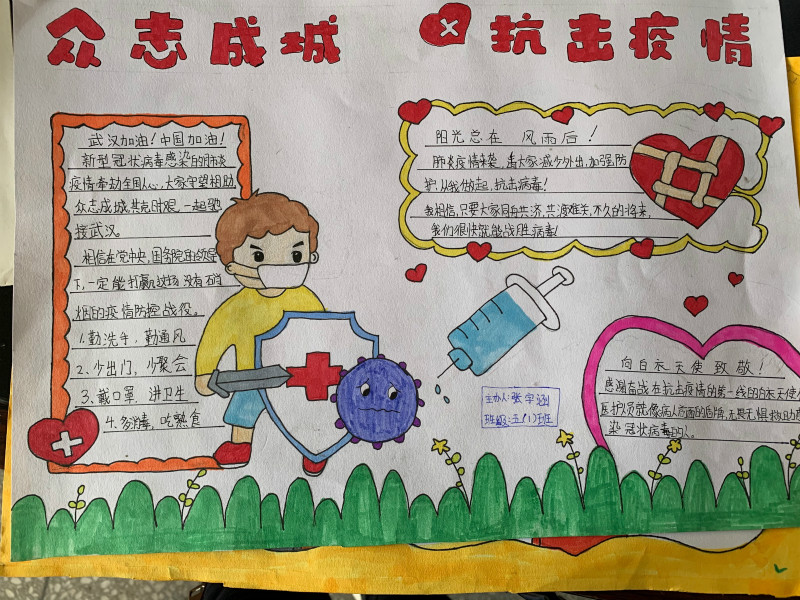 众志成城 抗击疫情
武汉加油！中国加油！
新型冠状病毒感染的肺炎
疫情牵动全国人心，大家守望相助，
众志成城，共克时艰，一起驰
援武汉。
相信在党中央、国务院的领导
下，一定能打赢这场没有硝
烟的疫情防控战役。
1.勤洗手，勤通风
2.少出门，少聚会
3.戴口罩 讲卫生
4.多消毒，吃熟食
阳光总在 风雨后！
肺炎疫情来袭，大家减少外出，加强防
护，从我做起，抗击病毒！
我相信，只要大家同舟共济，共渡难关，不久的将来，
我们很快就能战胜病毒！
主办人：张宇涵
班级：五(1)班
向白衣天使致敬！
感谢奋战在抗击疫情的第一线的白衣天使
医护人员就像病人前面的盾牌，无畏无惧 救助感
染冠状病毒的人。